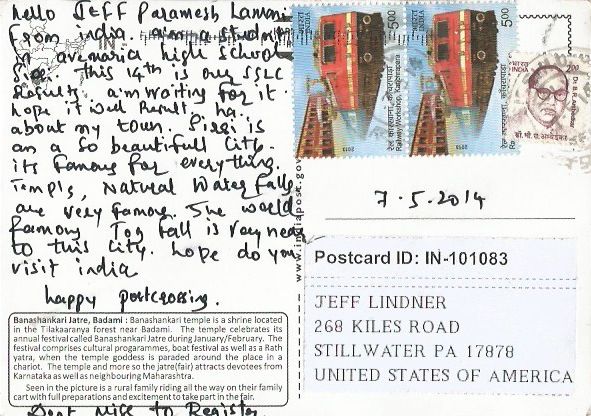 Hello JEFF Paramesh Lamani
from india. aim a student
in avemaria high school
Sirsi. This 14th is our SSLC
Results. aim waiting for it
hope it well Result, ha.
about my town. Sirsi is
an a So beautifull City.
its famous for everything.
Temple, Natural Water falls
are very famous. The world
famous Jog fall is Very near
to this City. hope do you
visit india
happy postcrossing.
Banashankari Jatre, Badami : Banashankari temple is a shrine located
in the Tilakaaranya forest near Badami. The temple celebrates its
annual festival called Banashankari Jatre during January/February. The
festival comprises cultural programmes, boat festival as well as a Rath
yatra, when the temple goddess is paraded around the place in a
chariot. The temple and more so the jatre(fair) attracts devotees from
Karnataka as well as neighbouring Maharashtra.
Seen in the picture is a rural family riding all the way on their family
cart with full preparations and excitement to take part in the fair.
Dont miss to Register
www.indiapost.gov
भारत INDIA
5.00
रेल कारखाना, काँचरापाड़ा
Railway Workshop, Kanchrapara
2013
भारत INDIA
5.00
रेल कारखाना, काँचरापाड़ा
2013
भारत
INDIA
Dr B.R. Ambedkar
बी. भी. रा. अम्बेडकर
7.5.2014
Postcard ID: IN-101083
JEFF LINDNER
268 KILES ROAD
STILLWATER PA 17878
UNITED STATES OF AMERICA